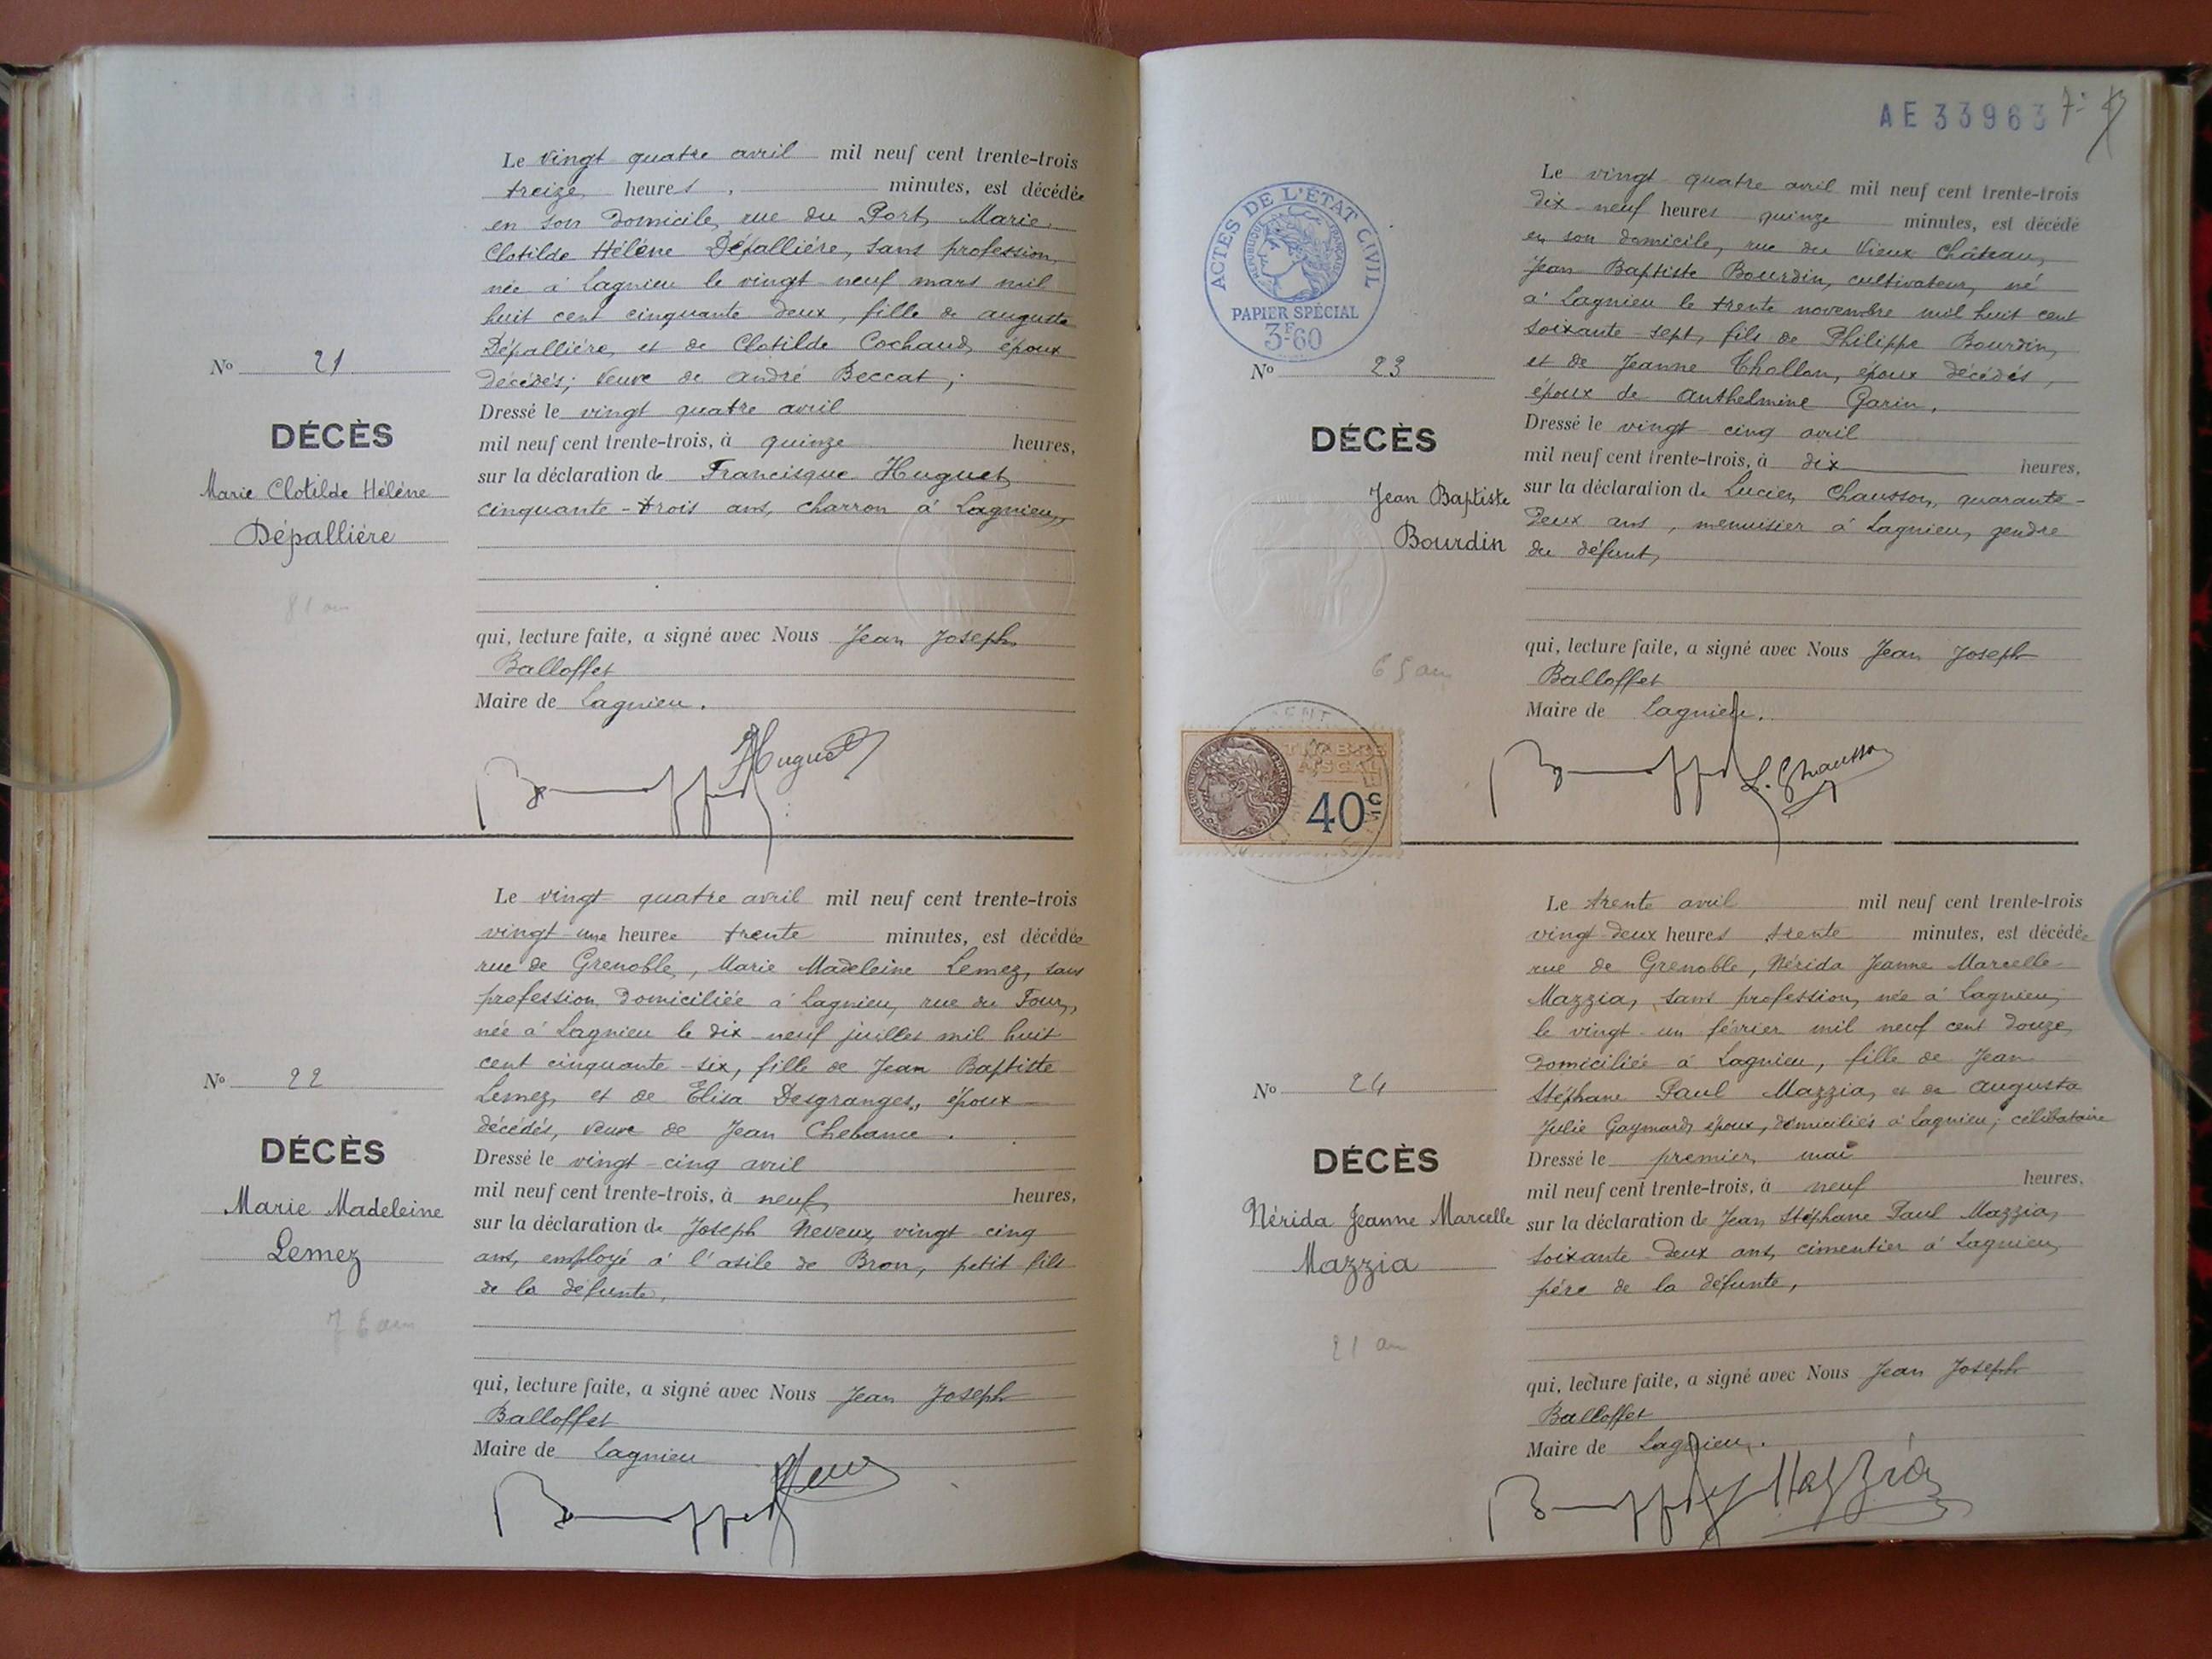 Le vingt quatre avril mil neuf cent trente-trois
treize heures, minutes, est décédée
en son domicile, rue du Port, Marie
Clotilde Hélène Dépallière, sans profession,
née à Lagnieu le vingt-neuf mars mil
huit cent cinquante deux, fille de Auguste
Dépallière, et de Clotilde Cochaud, époux
décédés; veuve de André Beccat;
Nº 21
DÉCÈS
Marie Clotilde Hélène
Dépallière
81 ans
Dressé le vingt quatre avril
mil neuf cent trente-trois, à quinze heures,
sur la déclaration de Francisque Huguet,
cinquante-trois ans, charron à Lagnieu,
qui, lecture faite, a signé avec Nous Jean Joseph
Balloffet
Maire de Lagnieu.
Huguet
Le vingt quatre avril mil neuf cent trente-trois
vingt-une heures trente minutes, est décédée
rue de Grenoble, Marie Madeleine Lemez, sans
profession, domiciliée à Lagnieu, rue du Four,
née à Lagnieu le dix-neuf juillet mil huit
cent cinquante-six, fille de Jean Baptiste
Lemez, et de Elisa Desgranges, époux
décédés, veuve de Jean Chebance.
Nº 22
DÉCÈS
Marie Madeleine
Lemez
76 ans
Dressé le vingt-cinq avril
mil neuf cent trente-trois, à neuf heures,
sur la déclaration de Joseph Neveux, vingt-cinq
ans, employé à l'asile de Bron, petit-fils
de la défunte,
qui, lecture faite, a signé avec Nous Jean Joseph
Balloffet
Maire de Lagnieu
AE 33963
ACTES DE L'ÉTAT CIVIL
RÉPUBLIQUE FRANÇAISE
PAPIER SPÉCIAL
3F60
Le vingt quatre avril mil neuf cent trente-trois
dix-neuf heures quinze minutes, est décédé
en son domicile, rue du Vieux Château,
Jean Baptiste Bourdin, cultivateur, né
à Lagnieu le trente novembre mil huit cent
soixante-sept, fils de Philippe Bourdin,
et de Jeanne Chollon, époux décédés,
époux de Anthelmine Garin.
Nº 23
DÉCÈS
Jean Baptiste
Bourdin
65 ans
Dressé le vingt cinq avril
mil neuf cent trente-trois, à dix heures,
sur la déclaration de Lucien Chausson, quarante-
deux ans, menuisier à Lagnieu, gendre
du défunt,
qui, lecture faite, a signé avec Nous Jean Joseph
Balloffet
Maire de Lagnieu.
L. Chausson
TIMBRE
FISCAL
40c
Le trente avril mil neuf cent trente-trois
vingt-deux heures trente minutes, est décédée
rue de Grenoble, Nérida Jeanne Marcelle
Mazzia, sans profession, née à Lagnieu,
le vingt-un février mil neuf cent douze,
domiciliée à Lagnieu, fille de Jean
Stéphane Paul Mazzia, et de Augusta
Julie Gaymard, époux, domiciliés à Lagnieu; célibataire
Nº 24
DÉCÈS
Nérida Jeanne Marcelle
Mazzia
21 an
Dressé le premier mai
mil neuf cent trente-trois, à neuf heures,
sur la déclaration de Jean Stéphane Paul Mazzia,
soixante-deux ans, cimentier à Lagnieu,
père de la défunte,
qui, lecture faite, a signé avec Nous Jean Joseph
Balloffet
Maire de Lagnieu.
Mazzia